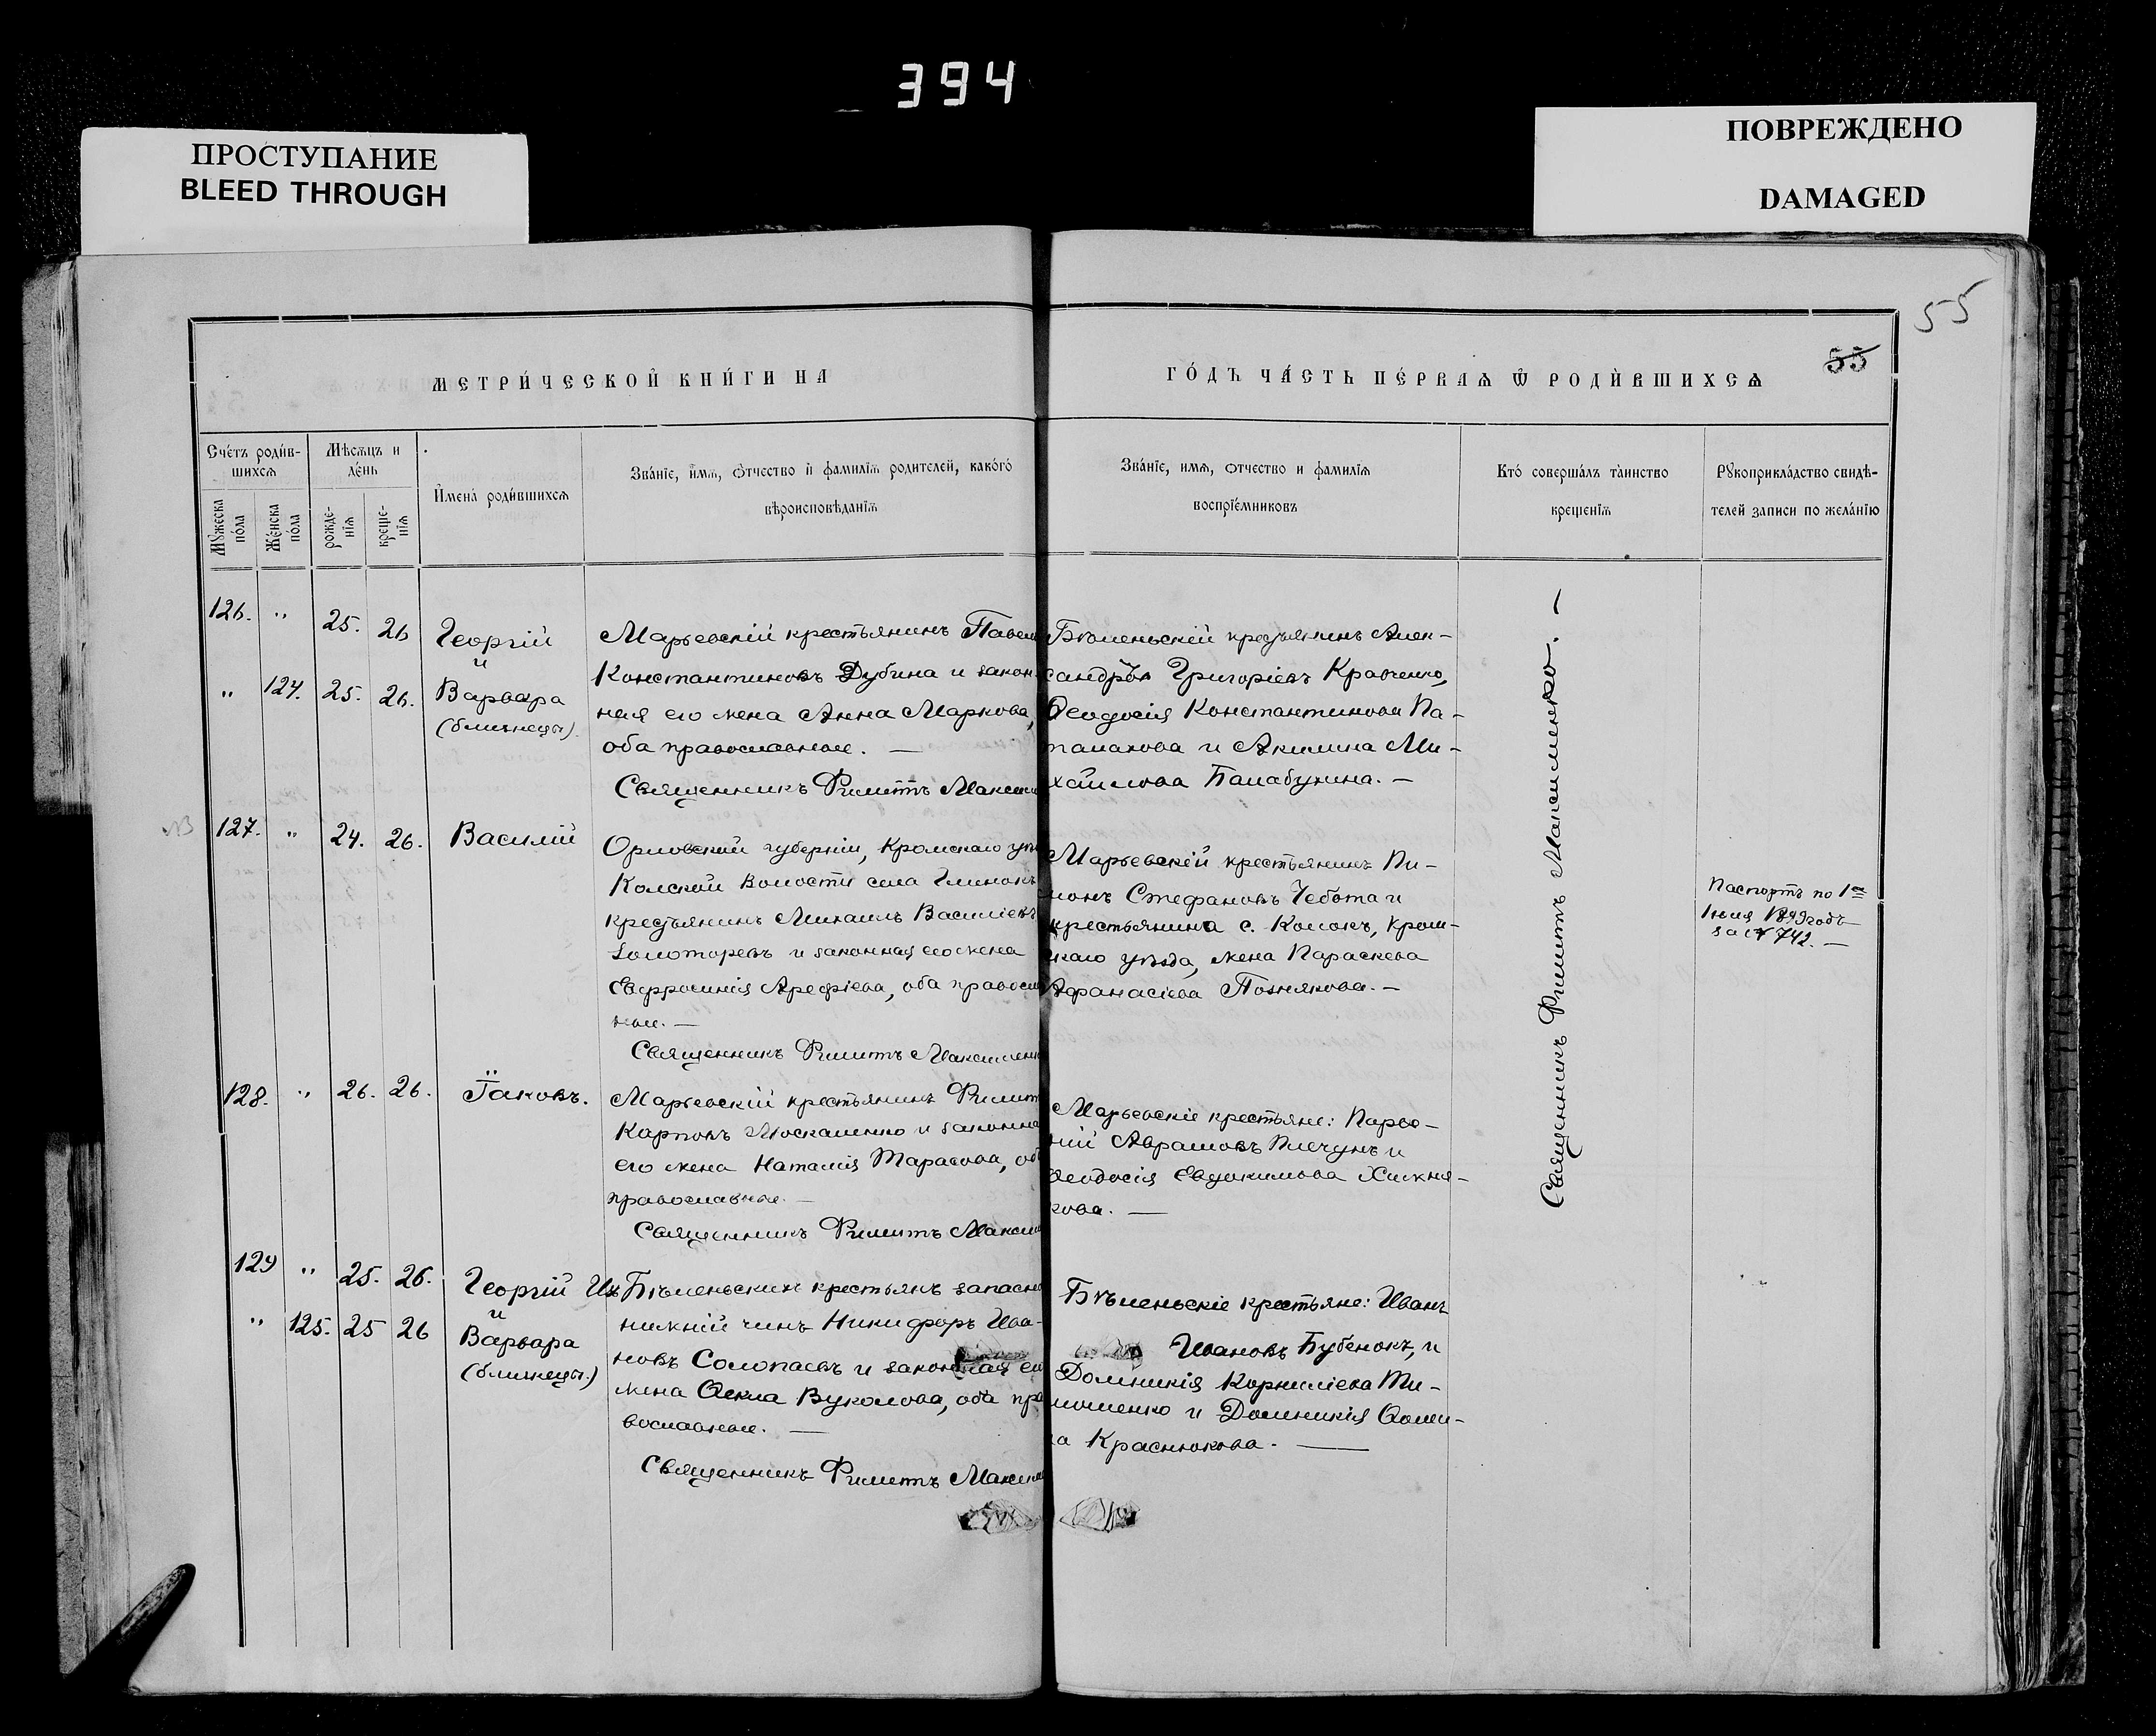 394
ПРОСТУПАНИЕ
BLEED THROUGH
ПОВРЕЖДЕНО
DAMAGED
55
55
МЕТРИ́ЧЕСКОЙ КНИ́ГИ НА
ГО́ДЪ ЧА́СТЬ ПЕ́РВАѦ Ѿ РОДИ́ВШИХСѦ
Сче́тъ роди́в-
шихсѧ
Мѣсѧцъ и
де́нь
Мꙋжеска
по́ла
Же́нска
по́ла
рожде-
нїѧ
креще-
нїѧ
Имена̀ роди́вшихсѧ
Зва́нїе, имѧ, ѻтчество и фамилїѧ родителей, како́гѡ
вѣроисповѣданїѧ
Зва́нїе, имѧ, ѻтчество и фамилїѧ
воспрїе́мниковъ
Кто̀ соверша́лъ та̀инство
крещенїѧ
Рꙋкоприкла́дство свидѣ-
телей записи по жела́нїю
126. " 25. 26 Георгій
и
" 124. 25. 26. Варвара
(близнецы).
Марьевскій крестьянинъ Павел
Константиновъ Дубина и закон-
ная его жена Анна Маркова,
оба православные. —
Священникъ Филиппъ Максим
Бѣленьскій крестьянинъ Алек-
сандръ Григоріевъ Кравченко,
Ѳеодосія Константинова Па-
талахова и Акилина Ми-
хайлова Балабухина. —
NB 127. " 24. 26. Василій
Орловской губерніи, Кромскаго уѣ
Колской волости села Глинокъ
крестьянинъ Михаилъ Василіевъ
Золоторевъ и законная его жена
Евфросинія Арефіева, оба правосл
ные. —
Священникъ Филиппъ Максименк
Марьевскій крестьянинъ Пи-
монъ Стефановъ Чебота и
крестьянина с. Колокъ, Кром-
скаго уѣзда, жена Параскева
Афанасіева Познякова. —
Паспортъ по 1е
Іюля 1899 годъ
за № 742. —
128. " 26. 26. Іаковъ.
Марьевскій крестьянинъ Филип
Карповъ Москаленко и законна
его жена Наталія Тарасова, об
православные. —
Священникъ Филиппъ Максим
Марьевскіе крестьяне: Парѳе-
ній Аврамовъ Плечунъ и
Ѳеодосія Евдокимова Хижня-
кова. —
129 " 25. 26. Георгій
и
" 125. 25 26 Варвара
(близнецы.)
Изъ Бѣленьскихъ крестьянъ запасн
нижній чинъ Никифоръ Ива-
новъ Солопаевъ и законная ег
жена Ѳекла Вуколова, оба пра
вославные. —
Священникъ Филиппъ Максим
Бѣленьскіе крестьяне: Иванъ
Ивановъ Бубенокъ, и
Домникія Корниліева Ти-
мошенко и Домникія Ѳоми-
на Краснюкова. —
Священникъ Филиппъ Максименко. —